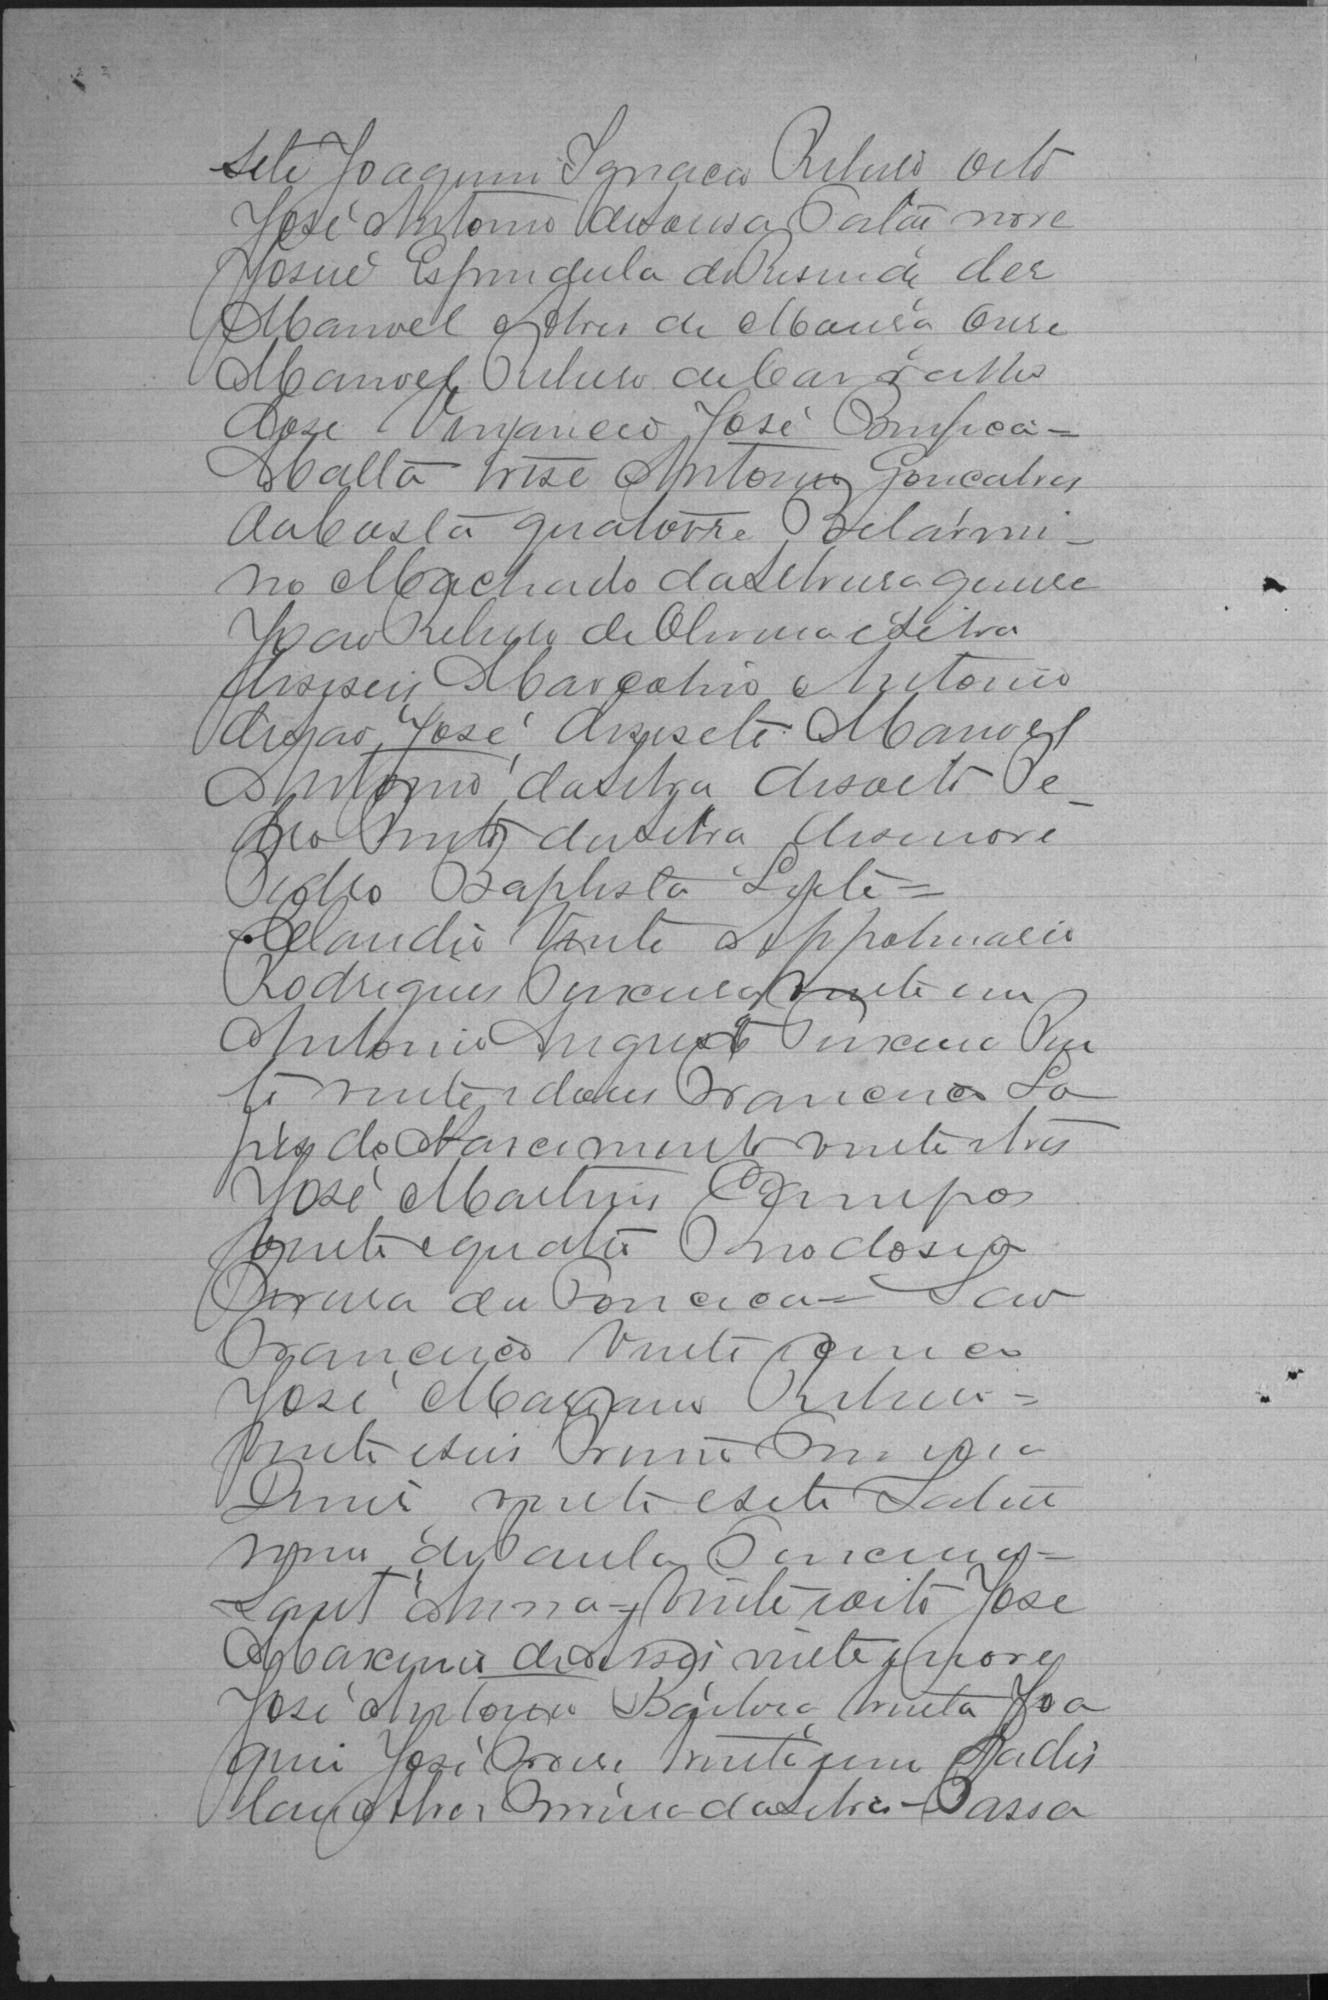 sete Joaquim Ignacio Ribeiro oito
José Antonio de Sousa nove
Josué Espindula de Resende dez
Manoel Alves de Moura onse
Manoel Ribeiro de Carvalho
dose Venancio José Bonifica=
Malta trese Antonio Goncalves
da Costa quatorze Belarmi-
no Machado da Silveira quinse
João Ribeiro de Oliveira e Silva
deseseis Marcolino Antonio
José desesete Manoel
Antonio da Silva desoito Pe-
dro Pinto da Silva desenove
Pedro Baptista Leite=
Claudio vinte Appolinario
Rodrigues Teixeira vinte um
Antonio Augusto Teixeira Pin
to vinte e dous Francisco Lo
pes do Nascimento vinte e tres
José Martins Campos
vinte e quatro Theodosio
Pereira da Fonceca= São
Francisco vinte e cinco
José Mariano Ribeiro=
vinte e seis
Diniz vinte e sete Satur
nino de Paula Teixeira=
Sant'Anna= vinte e oito José
Maximo de Assis vinte e nove
José Antonio trinta Joa
quim José trinta e um Ladis
lau Alves da Silva=Passa